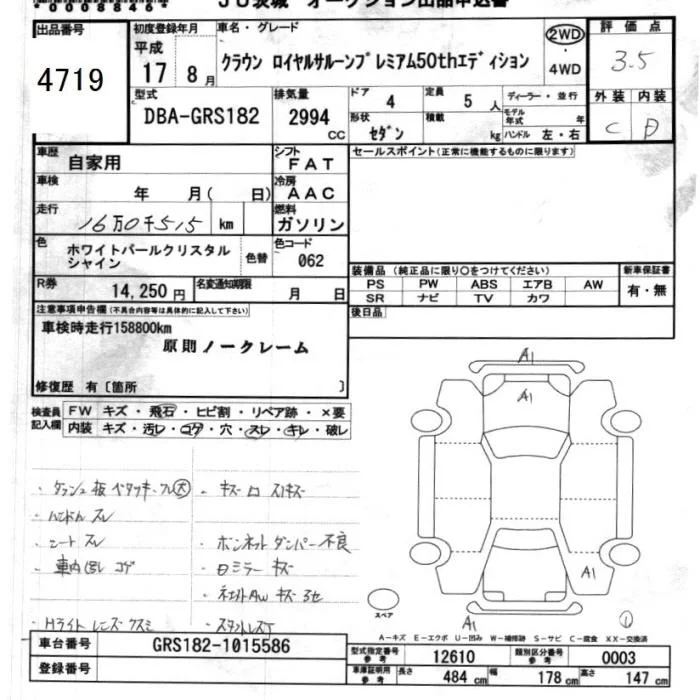 00000846 JU茨城 オークション出品申込書
出品番号 初度登録年月 車名・グレード 2WD 評価点
4719 平成 17 8月 クラウン ロイヤルサルーンプレミアム50thエディション 4WD 3.5
型式 排気量 ドア 4 定員 5 人 ディーラー・並行 外装 内装
DBA-GRS182 2994 cc 形状 セダン 積載 kg モデル年式 年 ハンドル 左・右 C D
車歴 自家用 シフト FAT セールスポイント(正常に機能するものに限ります)
車検 年 月( 日) 冷房 AAC
走行 16万0千515 km 燃料 ガソリン
色 ホワイトパールクリスタルシャイン 色替 色コード 062
装備品(純正品に限り○をつけてください) 新車保証書
PS PW ABS エアB AW 有・無
SR ナビ TV カワ
R券 14,250円 名変通知期限 月 日
後日品
注意事項申告欄(不具合内容等は具体的に記入して下さい)
車検時走行158800km
原則ノークレーム
修復歴 有〔箇所 〕
検査員記入欄 FW キズ・飛石・ヒビ割・リペア跡・×要
内装 キズ・汚レ・コゲ・穴・スレ・キレ・破レ
A1
A1
・ダッシュ板ベタツキ・フル大 ・キズ凹スリキズ
・ハンドルスレ
・シートスレ ・ボンネットダンパー不良
・車内 コゲ ・ミラーキズ
A1
・Hライトレンズクスミ
スペア
A1
1
A-キズ E-エクボ U-凹み W-補修跡 S-サビ C-腐食 XX-交換済
車台番号 GRS182-1015586 型式指定番号 参考 12610 類別区分番号 参考 0003
登録番号 車庫証明用 参考 長さ 484 cm 幅 178 cm 高さ 147 cm